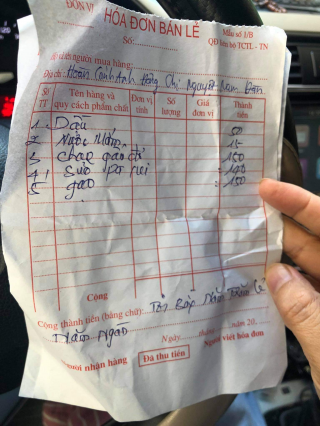 ĐƠN VỊ
HÓA ĐƠN BÁN LẺ
Mẫu số 1/B
QĐ liên bộ TCTL - TN
Số:
người mua hàng:
Địa chỉ: Hoàn cảnh Anh Đông Chị Nguyệt Nam Đàn
Số TT Tên hàng và quy cách phẩm chất Đơn vị tính Số lượng Giá đơn vị Thành tiền
1 Dầu 50
2 Nước Mắm 15
3 150
4 Sữa
5 gạo 150
Cộng
Cộng thành tiền (bằng chữ): Năm Trăm
Năm Ngàn
Ngày tháng năm 20
Người nhận hàng Đã thu tiền Người viết hóa đơn